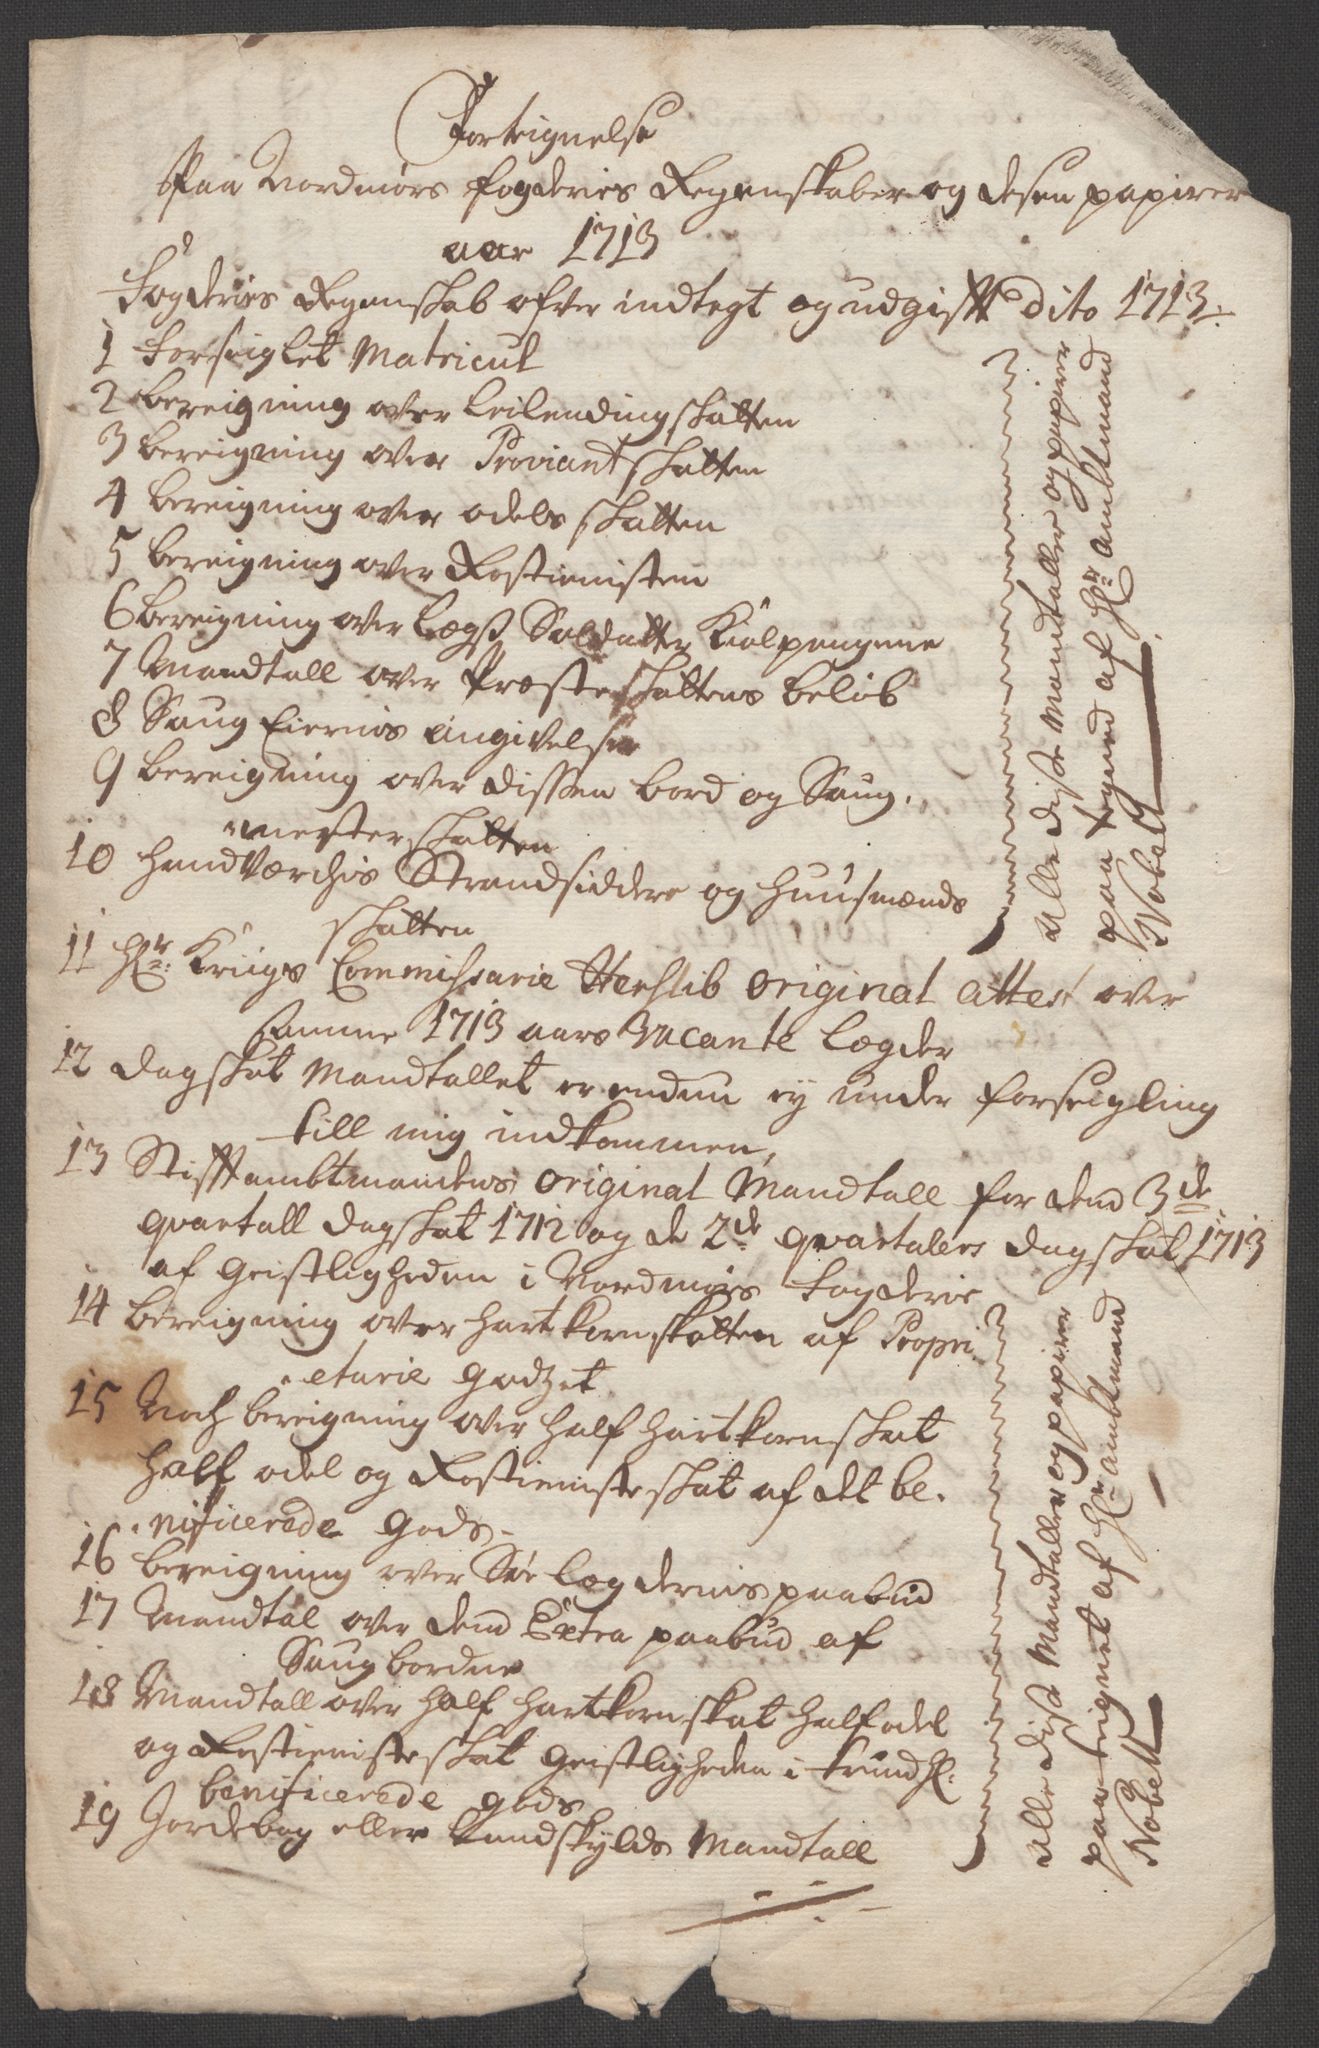 Forteignelse
Paa Nordmørs fogderies Regenskaber og desen papirer
aar 1713
Fogderies Regenskab ofver indtegt og udgifft dito 1713
1 Forseiglet Matricul
2 bereigning over Leilendingskatten
3 bereigning over Proviant skatten
4 bereigning over odels skatten
5 bereigning over Rostienisten
6 bereigning over Legs Soldatter Kiolpengene
7 Mandtall over Præsteskattens beløb
8 Saug Eiernis angivelse
9 bereigning over dissen bord og Saug
mesterskatten
10 handværchis Strandsiddere og huusmænds
skatten
11 Hr: Kriigs Commissarie Hersleb original attest over
samme 1713 aars Vacante Lægder
12 dagskat Mandtallet er endnu ey under forseigling
till mig indkommen,
13 Stifftambtmandens original Mandtall for dend 3de
qvartall dagskat 1712 og de 2de qvartalers dagskat 1713
af Geistligheden i Nordmørs Fogderie
14 bereigning over hartkornskatten af Propri
etarie Godzet
15 Noch bereigning over half hartkornskat
half odel og Rostienisteskat af det be.
nificerede Gods.
16 bereigning over Søe Lægdernis paabud
17 Mandtal over dend Extra paabud af
Saugbordne
18 Mandtall over half hartkornskat half odel
og Rostienisteskat Geistligheden i Trundh:
benificerede Gods
19 Jordebog eller Landskylds Mandtall
alle disse Mandtaller og papirer
paa tegned af Hr Ambtmand
Nobell
alle disse Mandtaller og papirer
paateignet af Hr Ambtmand
Nobell